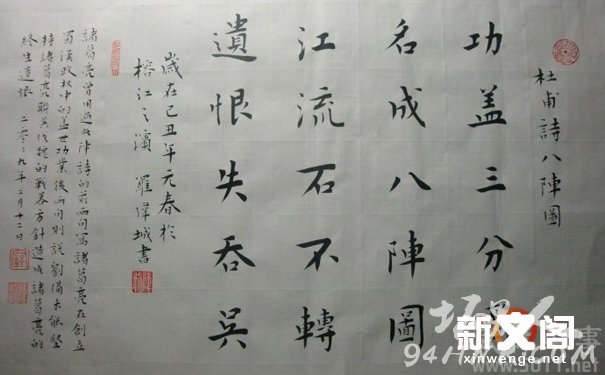 杜甫詩八陣圖
功盖三分
名成八陣圖
江流石不轉
遺恨失吞吳
歲在己丑年元春於
榕江之濱 羅偉城書
諸葛亮曾用過此陣詩的前兩句寫諸葛亮在創立
蜀漢政权中的盖世功業後兩句則説劉備未能堅
持諸葛亮聯吳伐魏的戰畧方針造成諸葛亮的
終生遺恨 二〇〇九年二月十二日
新文阁
xinwenge.net